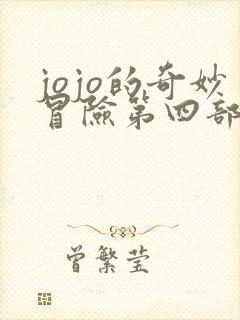 jojo的奇妙
冒險第四部
曾繁莹